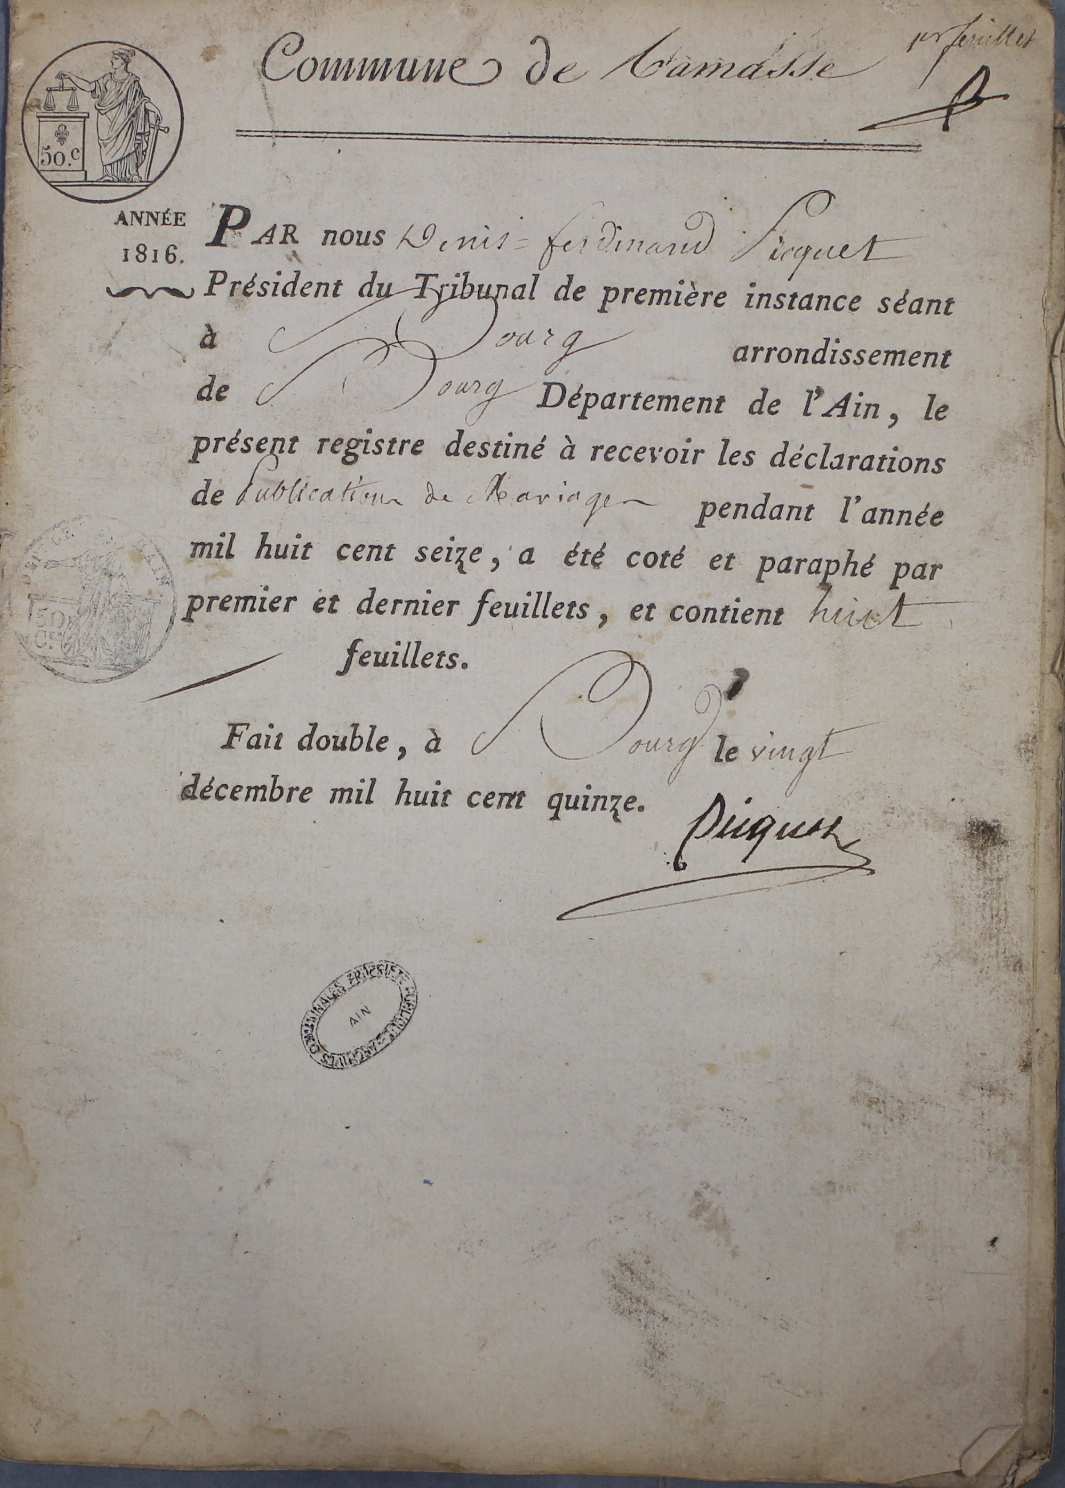 Commune de Ramasse
1er feuillet
50.c
ANNÉE
1816.
PAR nous Denis=ferdinand Picquet
Président du Tribunal de première instance séant
à Bourg arrondissement
de Bourg Département de l'Ain, le
présent registre destiné à recevoir les déclarations
de Publication de Mariage pendant l'année
mil huit cent seize, a été coté et paraphé par
premier et dernier feuillets, et contient huit
feuillets.
Fait double, à Bourg le vingt
décembre mil huit cent quinze.
Picquet
ARCHIVES COMMUNALES
AIN